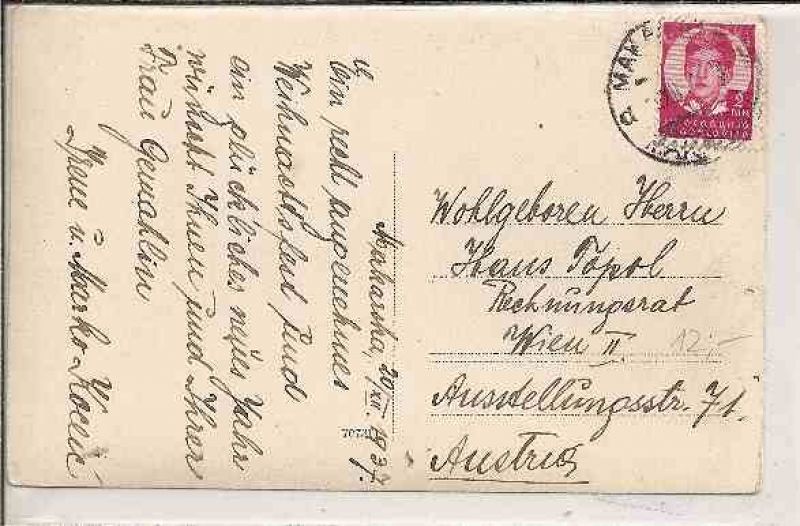 Makarska, 20/XII. 1937.
Ein recht angenehmes
Weihnachtsfest und
ein glückliches neues Jahr
wünscht Ihnen und Ihrer
Frau Gemahlin
Irene u. Marko Kocić
7073
MAKAR
2
Wohlgeboren Herrn
Hans Topol
Rechnungsrat
Wien II
12,-
Ausstellungsstr. 71.
Austria